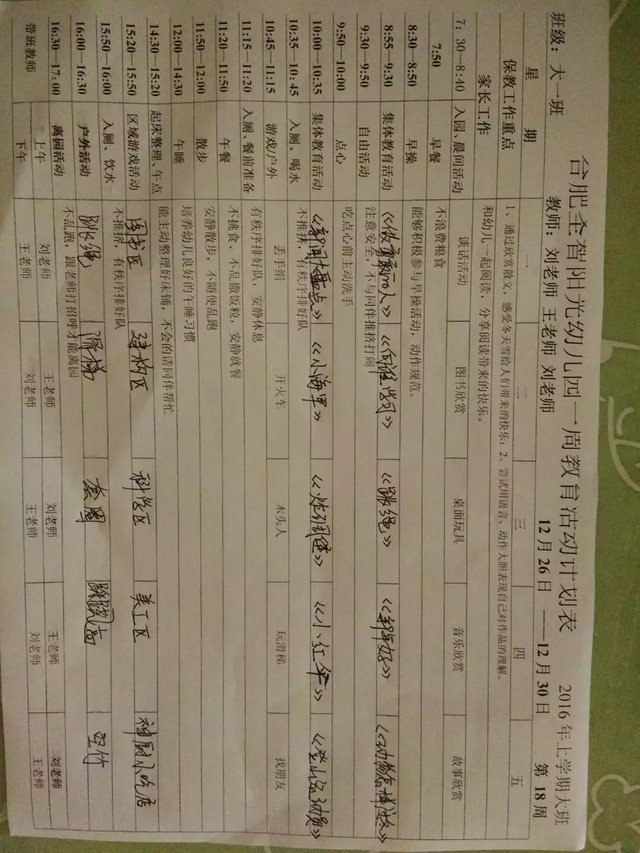 合肥圣智阳光幼儿园一周教育活动计划表 2016年上学期大班
班级：大一班 教师：刘老师 王老师 刘老师 12月26日——12月30日 第18周
星期 一 二 三 四 五
保教工作重点 1、通过欣赏散文，感受冬天雪给人们带来的快乐；2、尝试用语言、动作大胆表现自己对作品的理解。
家长工作 和幼儿一起阅读，分享阅读带来的快乐。
7：30—8:40 入园、晨间活动 谈话活动 图书欣赏 桌面玩具 音乐欣赏 故事欣赏
7:50 早餐 不浪费粮食
8:30—8:50 早操 能够积极参与早操活动，动作规范。
8:55—9:30 集体教育活动 《向谁学习》 《跳绳》 《新年好》
9:30—9:50 自由活动 注意安全，不与同伴推挤打闹
9:50—10:00 点心 吃点心前主动洗手
10:00—10:35 集体教育活动 《小海军》 《小红伞》 《登山运动员》
10:35—10:45 入厕、喝水 不推挤，有秩序排好队
10:45—11:15 游戏/户外 丢手绢 开火车 木头人 玩滑梯 找朋友
11:15—11:20 入厕、餐前准备 有秩序排好队、安静休息
11:20—11:50 午餐 不挑食，不乱撒饭粒，安静就餐
11:50—12:00 散步 安静散步，不随便乱跑
12:00—14:30 午睡 培养幼儿良好的午睡习惯
14:30—15:20 起床整理、午点 能主动整理好床铺，不会的请同伴帮忙
15:20—15:50 区域游戏活动 图书区 建构区 科学区 美工区 小吃店
15:50—16:00 入厕、饮水 不推挤，有秩序排好队
16:00—16:30 户外活动 跳绳 滑梯 套圈 踩高 空竹
16:30—17:00 离园活动 不乱跑，跟老师打招呼才能离园
带班教师 上午 刘老师 王老师 刘老师 王老师 刘老师
下午 王老师 刘老师 王老师 刘老师 王老师